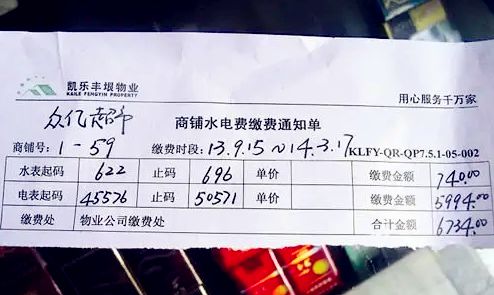 凯乐丰垠物业
KAILE FENGYIN PROPERTY
用心服务千万家
众亿超市
商铺水电费缴费通知单
商铺号: 1-59 缴费时段: 13.9.15~14.3.17 KLFY-QR-QP7.5.1-05-002
水表起码 622 止码 696 单价 缴费金额 740.00
电表起码 45576 止码 50571 单价 缴费金额 5994.00
缴费处 物业公司缴费处 合计金额 6734.00